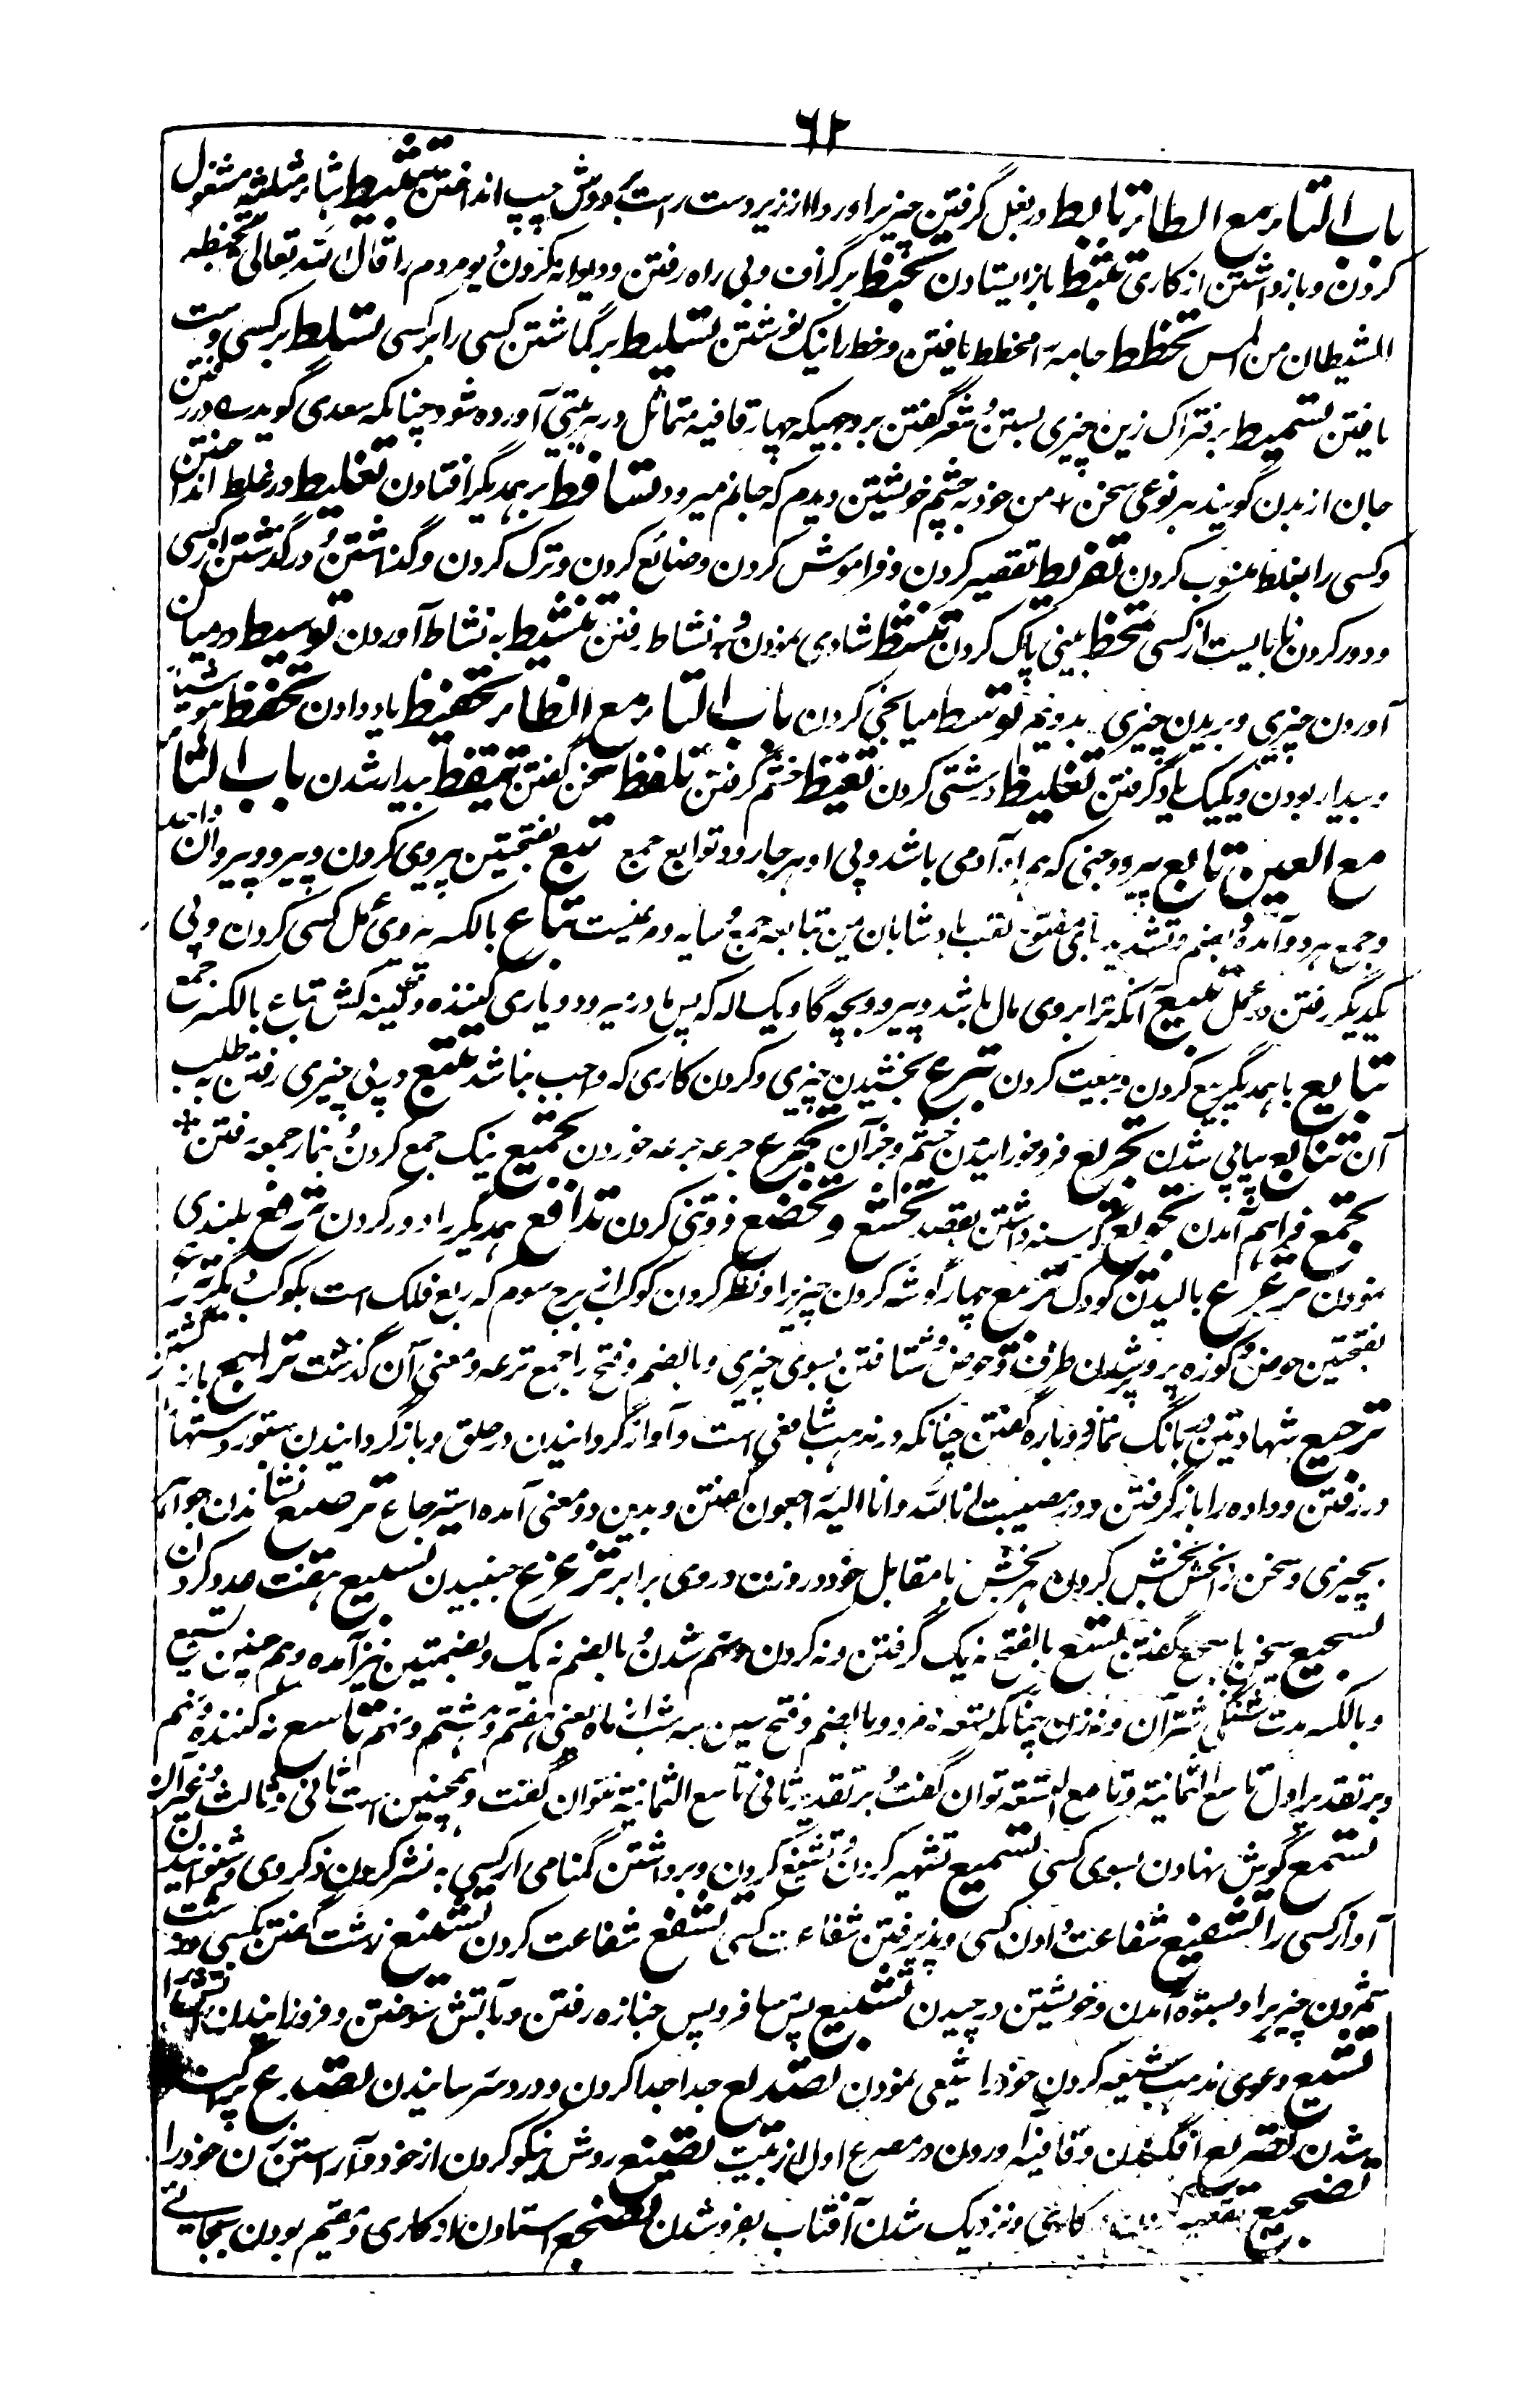 ٦٢
باب التاء مع الطاء تابط در بغل گرفتن چیزیرا و ردا از زیر دست راست بدوش چپ انداختن تثبیط بثاء مثلثه مشغول
کردن و بازداشتن از کاری تثبط باز ایستادن تخبط بر گزاف و بی راه رفتن و دیوانه کردن دیو مردم را قال الله تعالی یتخبطه
الشیطان من المس تخطط جامه را مخطط بافتن و خط را نیک نوشتن تسلیط بر گماشتن کسی را بر کسی تسلط بر کسی دست
یافتن تسمیط بر فتراک زین چیزی بستن و شعر گفتن بر وجهیکه چهار قافیه متماثل در هر بیتی آورده شود چنانکه سعدی گوید در رفتن
جان از بدن گویند هر نوعی سخن + من خود به چشم خویشتن دیدم که جانم میرود تساقط بر همدیگر افتادن تغلیط در غلط انداختن
و کسی را بغلط منسوب کردن تفریط تقصیر کردن و فراموش کردن و ضائع کردن و ترک کردن و گذاشتن و در گذشتن از کسی
و دور کردن نابایست از کسی تمخط بینی پاک کردن تنشط شادی نمودن و به نشاط رفتن تنشیط به نشاط آوردن توسیط در میان
آوردن چیزی و بریدن چیزی بدو نیم توسط میانجی کردن باب التاء مع الظاء تحفیظ یاد دادن تحفظ هوشیار
و بیدار بودن و یکیک یاد گرفتن تغلیظ درشتی کردن تغیظ خشم گرفتن تلفظ سخن گفتن تیقظ بیدار شدن باب التاء
مع العین تابع پیرو و جنی که همراه آدمی باشد و پی او هر جا رود توابع جمع تبع بفتحتین پیروی کردن و پیرو و پیروان واحد
و جمع هر دو آمده و بضم و تشدید بای مفتوح لقب پادشاهان یمن تبابعه جمع و سایه و مد عنیست تباع بالکسر پیروی عمل کسی کردن و پی
یکدیگر رفتن در عمل تبیع آنکه ترا بر وی مال باشد و پیرو و بچه گاو یکساله که پس مادر زیر رود و یاری کننده و کینه کش تباع بالکسر جمع
تبایع با همدیگر بیع کردن و بیعت کردن تبرع بخشیدن چیزی و کردن کاری که واجب نباشد تتبع در پئی چیزی رفتن به طلب
آن تتابع پیاپی شدن تجریع فرو خورانیدن خشم و جز آن تجرع جرعه جرعه خوردن تجمیع نیک جمع کردن و بنماز جمعه رفتن
تجمع فراهم آمدن تجویع گرسنه داشتن بقصد تخشع و تخضع فروتنی کردن تدافع همدیگر را دور کردن ترفع بلندی
نمودن ترعرع بالیدن کودک تربیع چهار گوشه کردن چیزیرا و نظر کردن کوکبی از برج سوم که ربع فلک است بکوکب دیگر ترع
بفتحتین حوض و کوزه پر و پر شدن ظرف و حوض و شتافتن بسوی چیزی و بالضم و فتح را جمع ترعه و معنی آن گذشت تراجع باز گشتن
ترجیع شهادتین در بانگ نماز دوباره گفتن چنانکه در مذهب شافعی است و آواز گردانیدن در حلق و باز گردانیدن ستور دستها را
در رفتن و داده را باز گرفتن و در مصیبت انا لله و انا الیه راجعون گفتن و بدین دو معنی آمده استرجاع ترصیع نشاندن جواهر
بچیزی و سخن را بخش بخش کردن هر بخش با مقابل خود در وزن و روی برابر تزعزع جنبیدن تسبیع هفت عدد کردن
تسجیع سخن با سجع گفتن تسع بالفتح نه یک گرفتن و نه کردن و نهم شدن و بالضم نه یک و بضمتین نیز آمده و هم چنین تسیع
و بالکسر مدت تشنگی شتران و نه زن چنانکه تسعه نه مرد و بالضم و فتح سین سه شب از ماه یعنی هفتم و هشتم و نهم تاسع نه کننده و نهم
و بر تقدیر اول تاسع الثمانیة و تاسع التسعه توان گفت و بر تقدیر ثانی تاسع الثمانیة نتوان گفت و همچنین است ثانی و ثالث و غیر آن
تستمع گوش نهادن بسوی کسی تسمیع تشهیر کردن و تشنیع کردن و برداشتن گمنامی از کسی به نشر کردن ذکر وی و شنوانیدن
آواز کسی را تشفیع شفاعت دادن کسی و پذیرفتن شفاعت کسی تشفع شفاعت کردن تشنیع زشت گفتن کسی
شمردن چیزیرا و بستوه آمدن و خویشتن در چیدن تشییع پس مسافر و پس جنازه رفتن و بآتش سوختن و فروزانیدن آتش را
تشیع دعوی مذهب شیعه کردن خود را شیعی نمودن تصدیع جدا جدا کردن و درد سر رسانیدن تصدع پراگنده
شدن تصریع افگندن و قافیه آوردن در مصرع اول از بیت تصنع روش نیکو کردن از خود و آراستن زن خود را
تضجیع تقصیر کردن در کاری و نزدیک شدن آفتاب بفرو شدن تضجع استادن از کاری و مقیم بودن بجائے